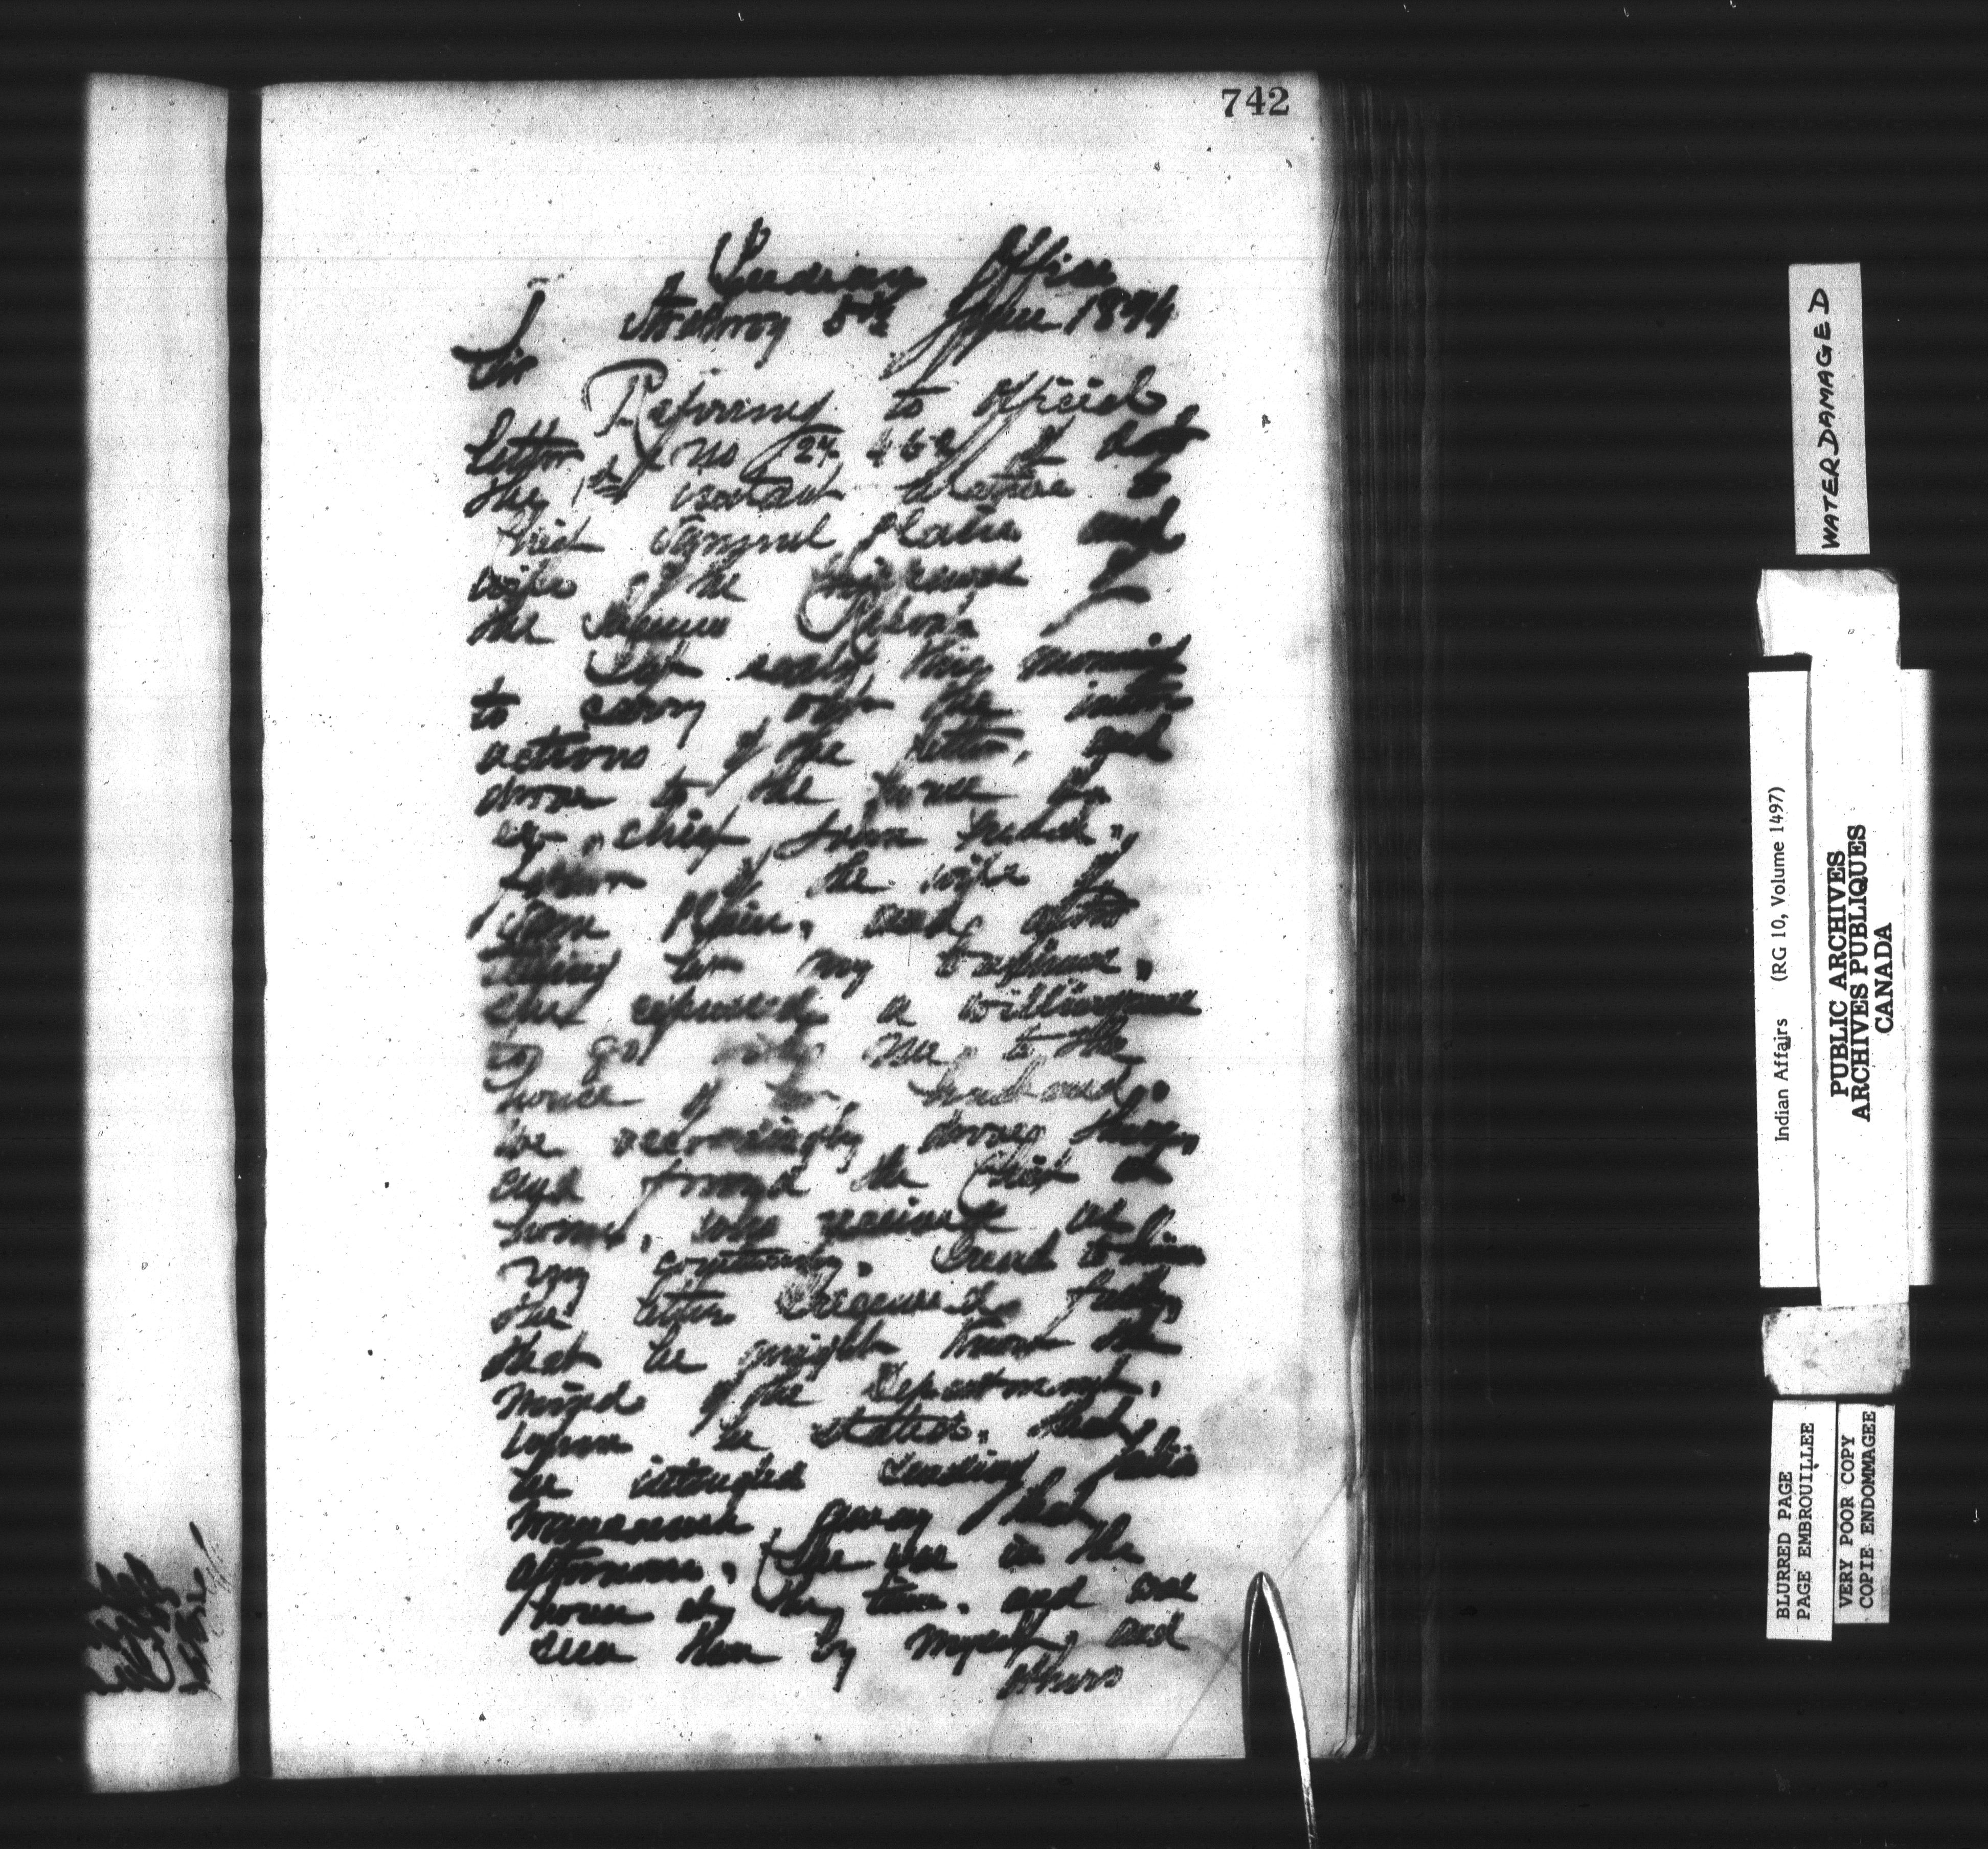 742
Indian Office
Strathroy 5th June 1894
Sir
Referring to official
Letter No 27 462 of date
the 1st instant relative to
Chief Samuel Plain and
wife of the Chippewas of
the Sarnia
I set early this morning
to carry out the instr
uctions of the letter, and
drove to the house of
ex. chief John
father of the wife of
Sam Plain, and after
telling her my business,
she expressed a willingness
to go with me to the
house of her husband.
We accordingly drove there,
and found the Chief at
home, who received us
very courteously. I read to him
the letter I received fully,
that he might know the
mind of the Department,
when he stated, that
he intended sending
away that
afternoon. She was in the
house at the time. and was
seen there by myself, and
others
WATER DAMAGED
Indian Affairs (RG 10, Volume 1497)
PUBLIC ARCHIVES
ARCHIVES PUBLIQUES
CANADA
BLURRED PAGE
PAGE EMBROUILLEE
VERY POOR COPY
COPIE ENDOMMAGEE